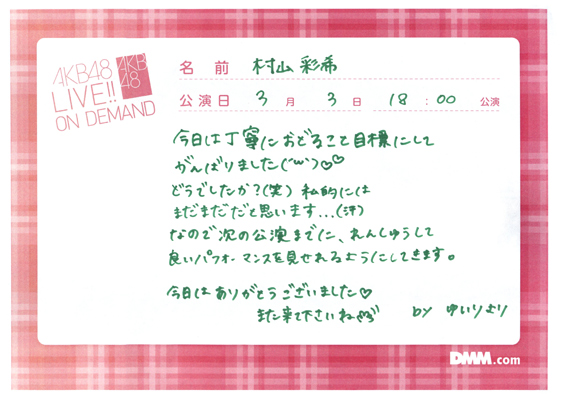 AKB48
LIVE!!
ON DEMAND
AKB
48
名前 村山彩希
公演日 3月3日 18:00 公演
今日は丁寧におどること目標にして
がんばりました(´ω`)♡♡
どうでしたか?(笑) 私的には
まだまだだと思います...(汗)
なので次の公演までに、れんしゅうして
良いパフォーマンスを見せれるようにしてきます。
今日はありがとうございました♡
また来て下さいね
by ゆいりより
DMM.com